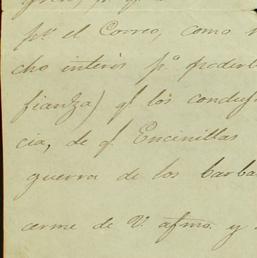 pr. el Correo, como
cho interés pa. poderl
fianza) qe. los conduj
cia, de q. Encinillas
guerra de los barba
cerme de V. afmo. y